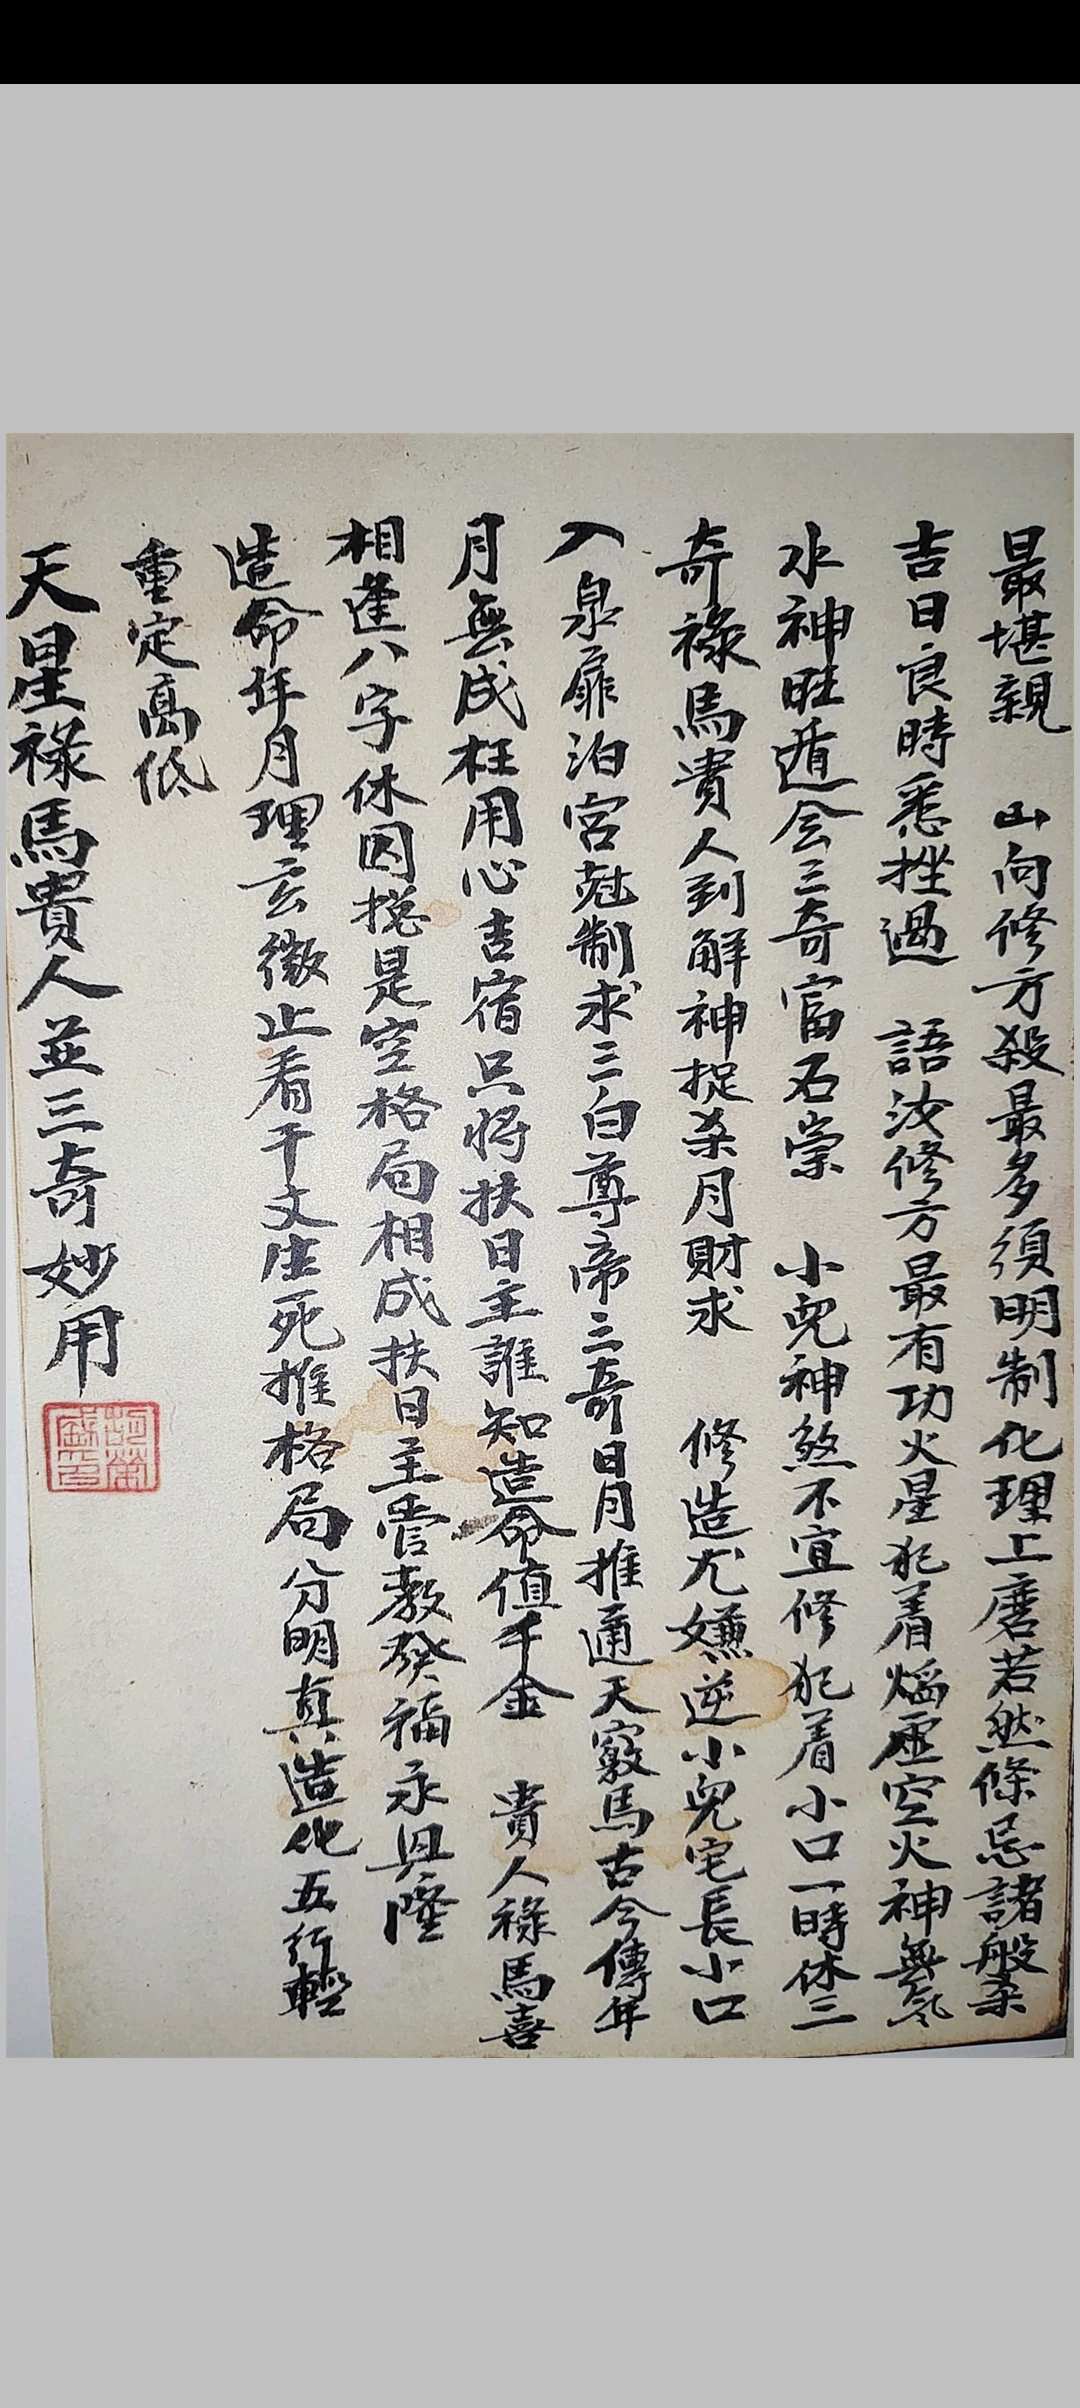 最堪親 山向修方殺最多須明制化理工磨若然條忌諸般杀
吉日良時悉挫過 語汝修方最有功火星犯着熖虛空火神無氣
水神旺遁会三奇富石崇 小兒神煞不宜修犯着小口一時休三
奇祿馬貴人到解神捉杀月財求 修造尤嫌逆小兒宅長小口
入泉扉泊宮尅制求三白尊帝三奇日月推通天竅馬古今傳年
月無成枉用心吉宿只將扶日主誰知造命值千金 貴人祿馬喜
相逢八字休囚摠是空格局相成扶日主管教發福永興隆
造命年月理玄微止看干支生死推格局分明真造化五行輕
重定高低
天星祿馬貴人並三奇妙用